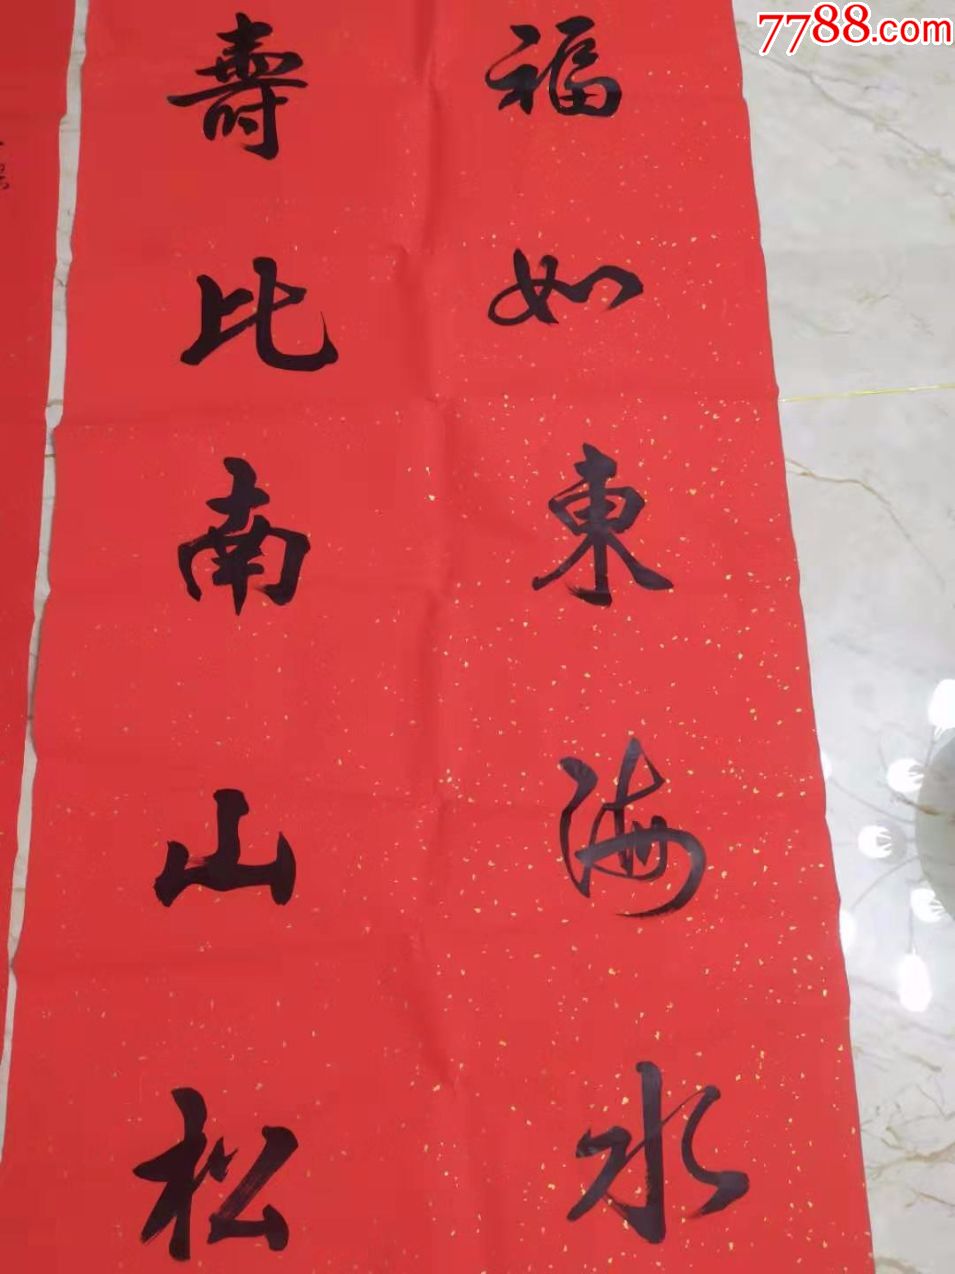 7788.com
福如東海水
壽比南山松